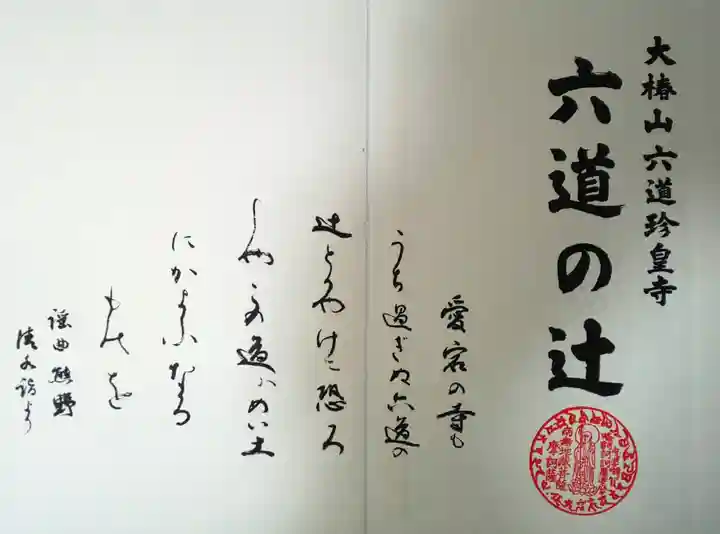 大椿山六道珍皇寺
六道の辻
愛宕の寺も
うち過ぎぬ六道の
辻とかやけに恐ろ
しや この道ハめい土
にかよふなる
ものを
謡曲熊野
清水詣より